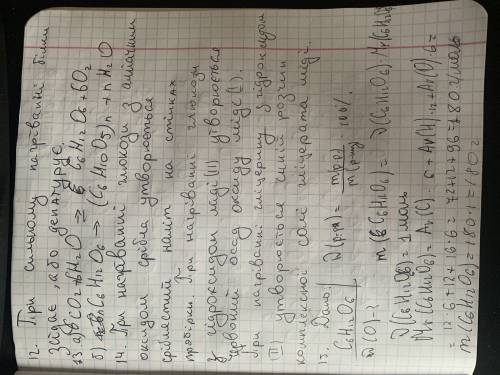 12. При сильному нагріванні білки
зсідає, або денатурує.
13. а) 6CO2 + 6H2O ⇒ C6H12O6 + 6O2
б) nC6H12O6 → (C6H10O5)n + nH2O
14. При нагріванні глюкози з аміачним
оксидом срібла утворюється
сріблястий наліт на стінках
пробірки. При нагріванні глюкози
з гідроксидом міді (II) утворюється
червоний осад оксиду міді (I).
При нагріванні гліцерину з гідроксидом
(II) утворюється синій розчин
комплексної солі гліцерата міді.
15. Дано:
C6H12O6
W(O)-?
W(р.р) = m(р.р) / m(р-ну) · 100%
m(C6H12O6) = ν(C6H12O6) · Mr(C6H12O6)
ν(C6H12O6) = 1 моль
Mr(C6H12O6) = Ar(C) · 6 + Ar(H) · 12 + Ar(O) · 6 =
= 12 · 6 + 12 + 16 · 6 = 72 + 12 + 96 = 180 г/моль
m(C6H12O6) = 180 · 1 = 180 г